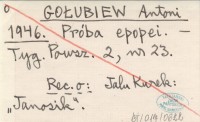 GOŁUBIEW Antoni
1946. Próba epopei. –
Tyg. Powsz. 2, nr 23.
Rec. o: Jalu Kurek:
„Janosik".